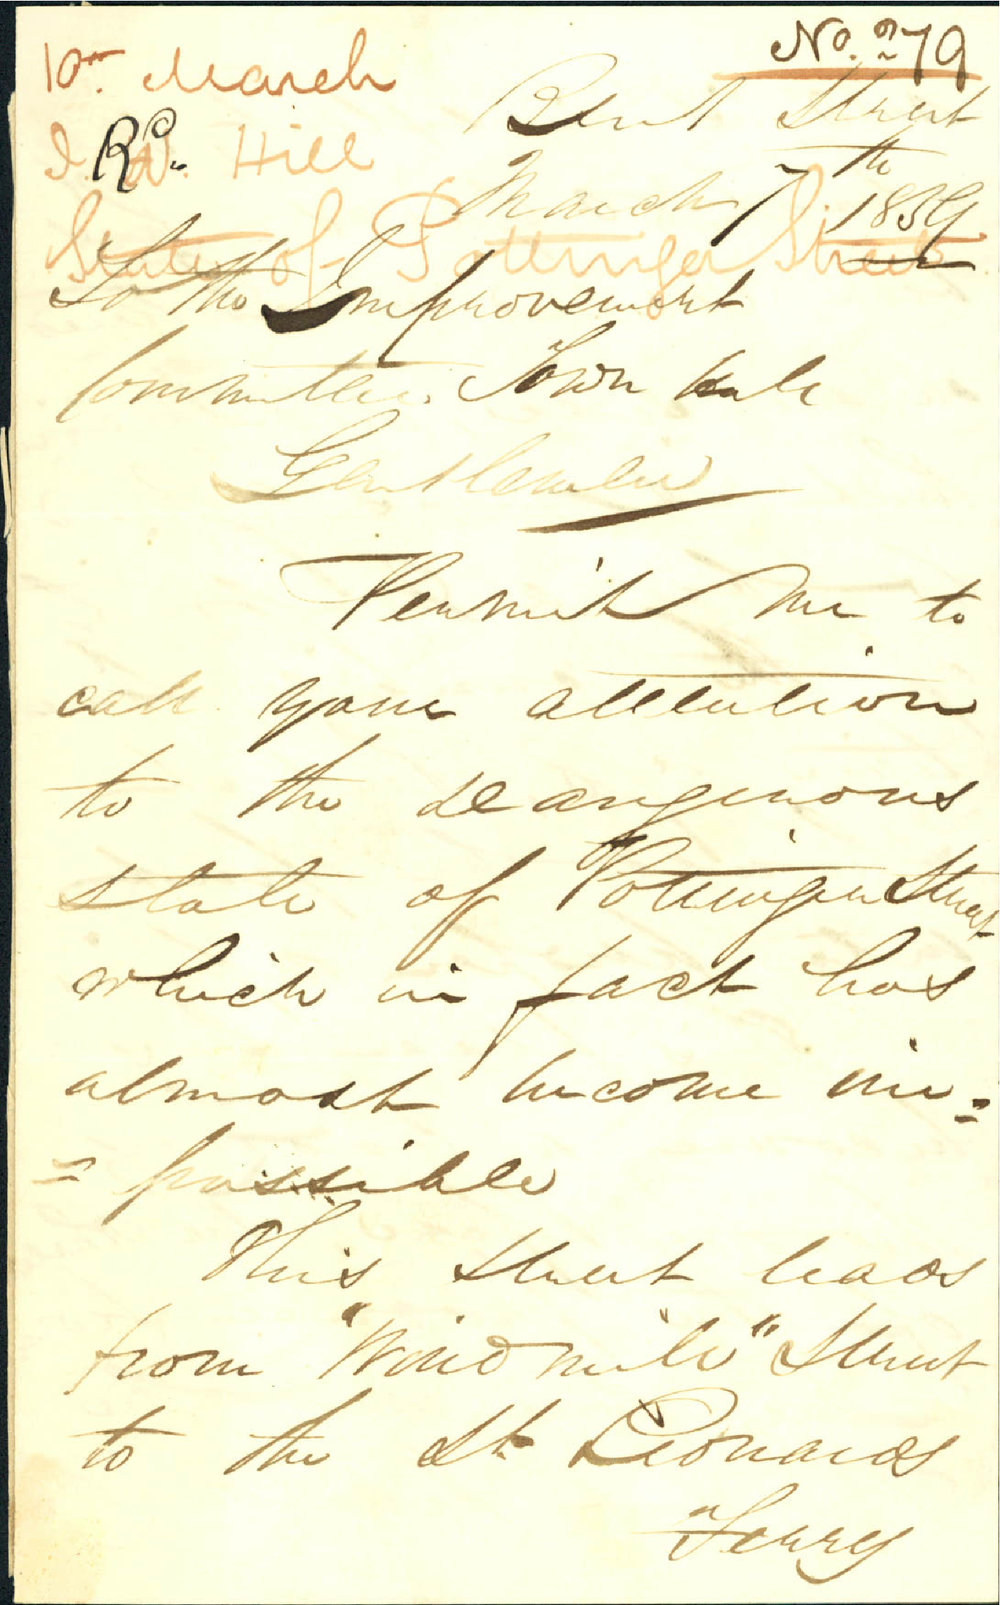 No. 279
10th March
J. R. Hill
State of Pottinger Street
Bent Street
March 7th
1859
To the Improvement
Committee. Town Hall
Gentlemen
Permit me to
call your attention
to the dangerous
state of Pottinger Street
which in fact has
almost become im=
=passible
This Street leads
from "Windmill" Street
to the St Leonards
Ferry